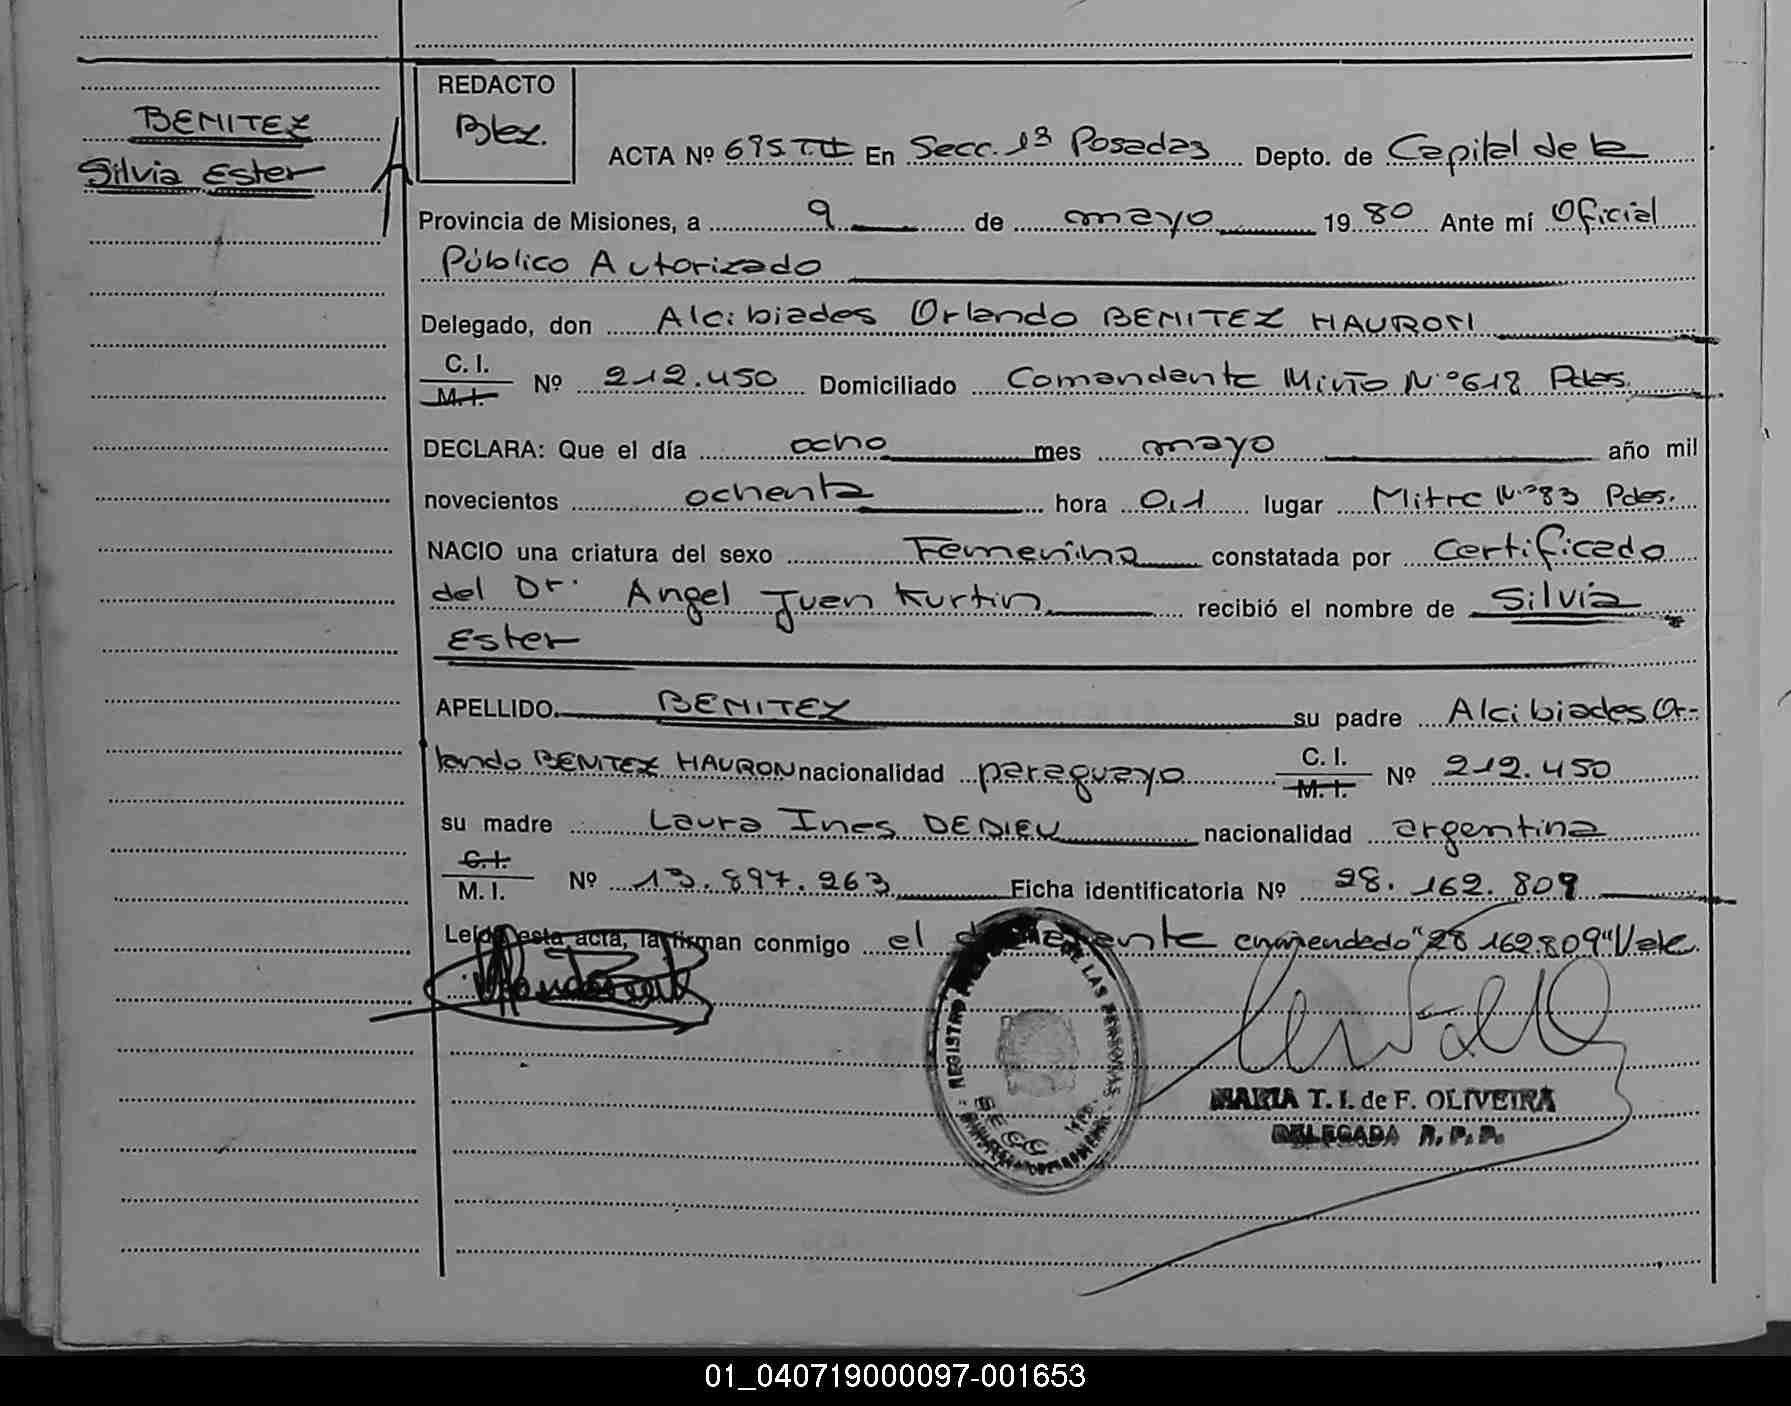 BENITEZ
Silvia Ester
REDACTO
Blez.
ACTA Nº 695 TII En Secc. 1ª Posadas Depto. de Capital de la
Provincia de Misiones, a 9 de mayo 1980 Ante mí Oficial
Público Autorizado
Delegado, don Alcibiades Orlando BENITEZ HAURON
C. I.
M. I.
Nº 212.450 Domiciliado Comandante Miño Nº 618 Pdas.
DECLARA: Que el día ocho mes mayo año mil
novecientos ochenta hora 0,1 lugar Mitre Nº 83 Pdas.
NACIO una criatura del sexo Femenina constatada por Certificado
del Dr. Angel Juan Kurtin recibió el nombre de Silvia
Ester
APELLIDO BENITEZ su padre Alcibiades Or-
lando BENITEZ HAURON nacionalidad paraguayo C. I. M. I. Nº 212.450
su madre Laura Ines DEDIEU nacionalidad argentina
C. I.
M. I.
Nº 13.897.263 Ficha identificatoria Nº 28.162.809
Leída esta acta, la firman conmigo el enmendado "28 162.809" Vale.
REGISTRO DE LAS PERSONAS
SECC
MARIA T. I. de F. OLIVEIRA
DELEGADA R. P. P.
01_040719000097-001653